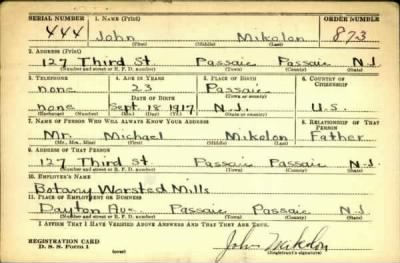 SERIAL NUMBER 1. NAME (Print) ORDER NUMBER
444 John Mikolon 873
(First) (Middle) (Last)
2. ADDRESS (Print)
127 Third St Passaic Passaic N.J.
(Number and street or R. F. D. number) (Town) (County) (State)
3. TELEPHONE 4. AGE IN YEARS 5. PLACE OF BIRTH 6. COUNTRY OF CITIZENSHIP
none 23 Passaic
DATE OF BIRTH (Town or county)
none Sept. 18 1917 N.J. U.S.
(Exchange) (Number) (Mo.) (Day) (Yr.) (State or country)
7. NAME OF PERSON WHO WILL ALWAYS KNOW YOUR ADDRESS 8. RELATIONSHIP OF THAT PERSON
Mr. Michael Mikolon Father
(Mr., Mrs., Miss) (First) (Middle) (Last)
9. ADDRESS OF THAT PERSON
127 Third St Passaic Passaic N.J.
(Number and street or R. F. D. number) (Town) (County) (State)
10. EMPLOYER'S NAME
Botany Worsted Mills
11. PLACE OF EMPLOYMENT OR BUSINESS
Dayton Ave. Passaic Passaic N.J.
(Number and street or R. F. D. number) (Town) (County) (State)
I AFFIRM THAT I HAVE VERIFIED ABOVE ANSWERS AND THAT THEY ARE TRUE.
REGISTRATION CARD
D. S. S. Form 1 (over) John Mikolon
(Registrant's signature)